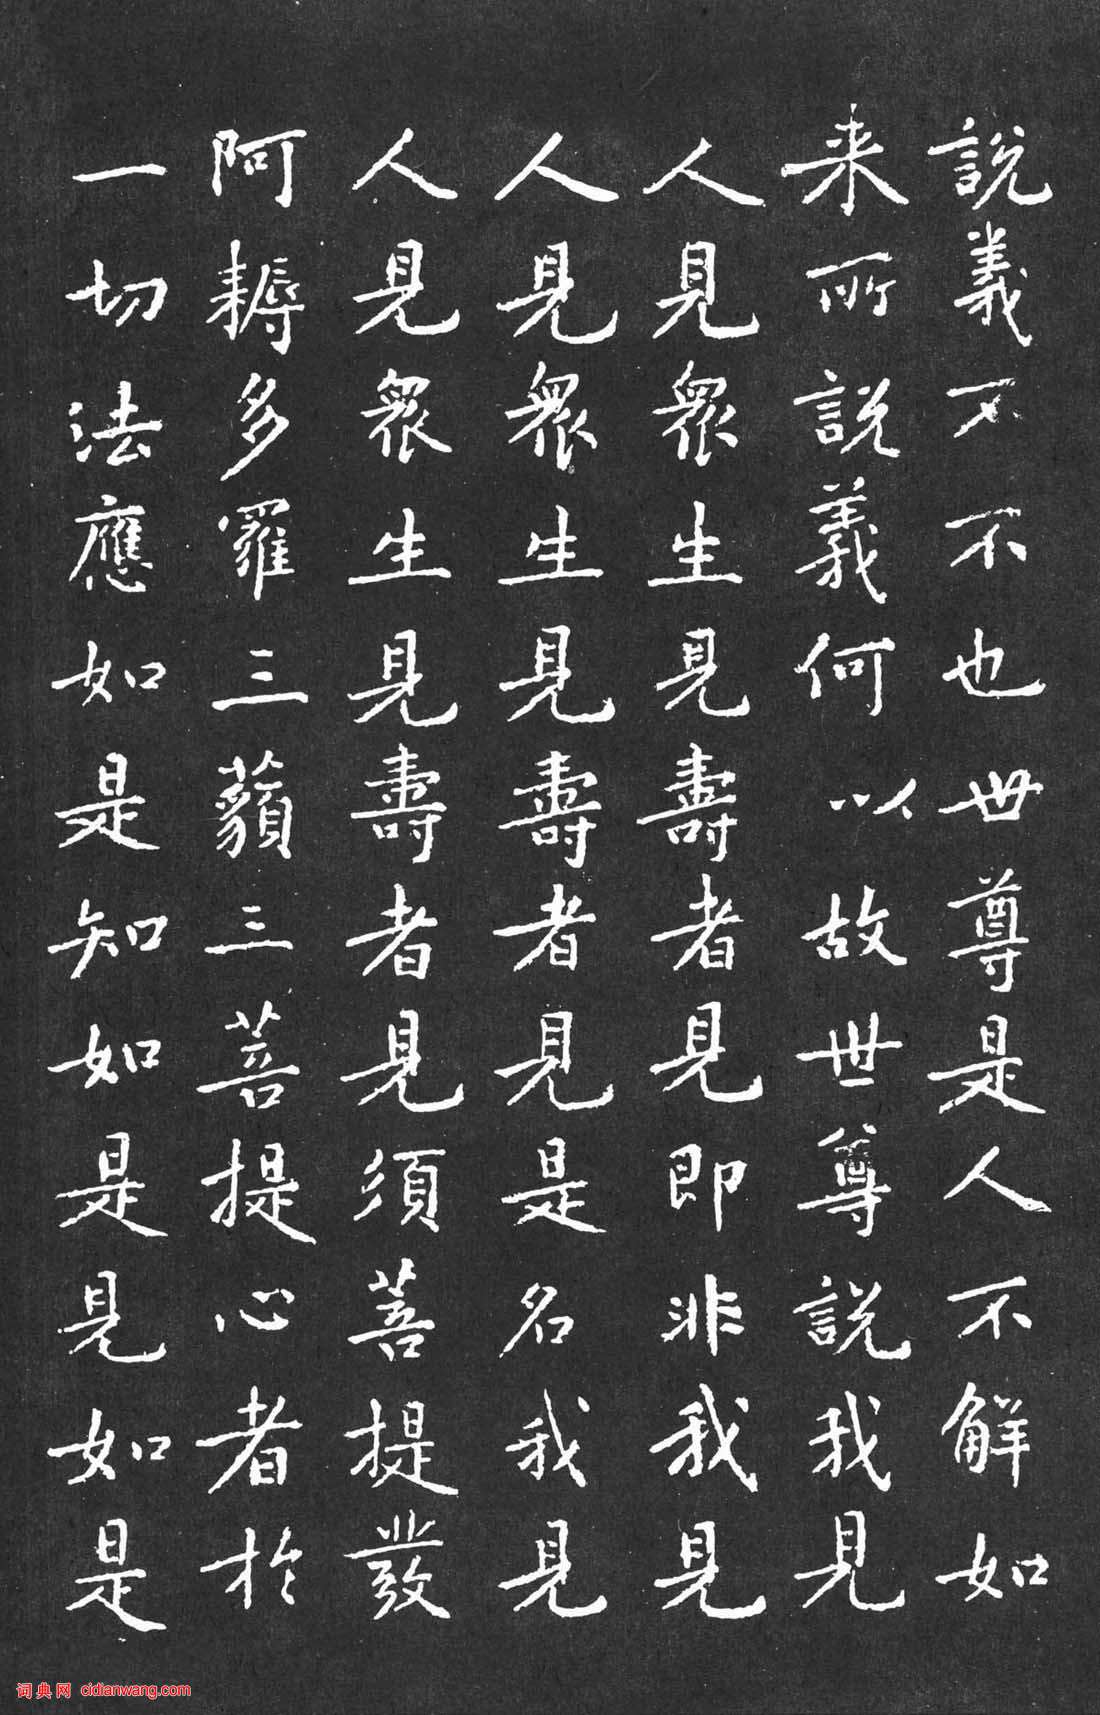 說義不不也世尊是人不解如
来所說義何以故世尊說我見
人見眾生見壽者見即非我見
人見眾生見壽者見是名我見
人見眾生見壽者見須菩提發
阿耨多羅三藐三菩提心者於
一切法應如是知如是見如是
词典网 cidianwang.com